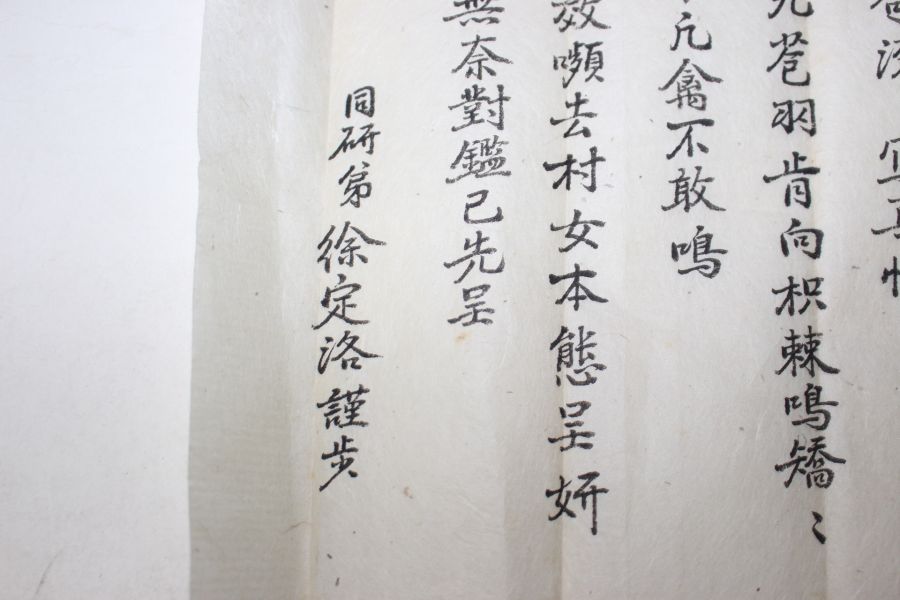 寫真
九苞羽肯向枳棘鳴矯〻
凡禽不敢鳴
效嚬去村女本態呈妍
無奈對鑑已先呈
同研弟徐定洛謹步